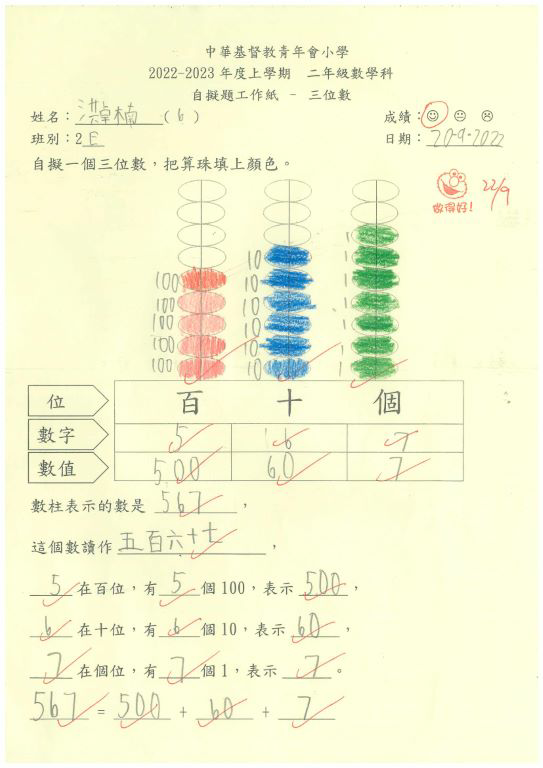 中華基督教青年會小學
2022-2023 年度上學期 二年級數學科
自擬題工作紙 - 三位數
姓名：洪卓楠（6） 成績：
班別：2E 日期：20-9-2022
自擬一個三位數，把算珠填上顏色。
做得好！ 22/9
1
10 1
100 10 1
100 10 1
100 10 1
100 10 1
100 10 1
位 百 十 個
數字 5 6 7
數值 500 60 7
數柱表示的數是 567，
這個數讀作 五百六十七，
5 在百位，有 5 個 100，表示 500，
6 在十位，有 6 個 10，表示 60，
7 在個位，有 7 個 1，表示 7。
567 = 500 + 60 + 7